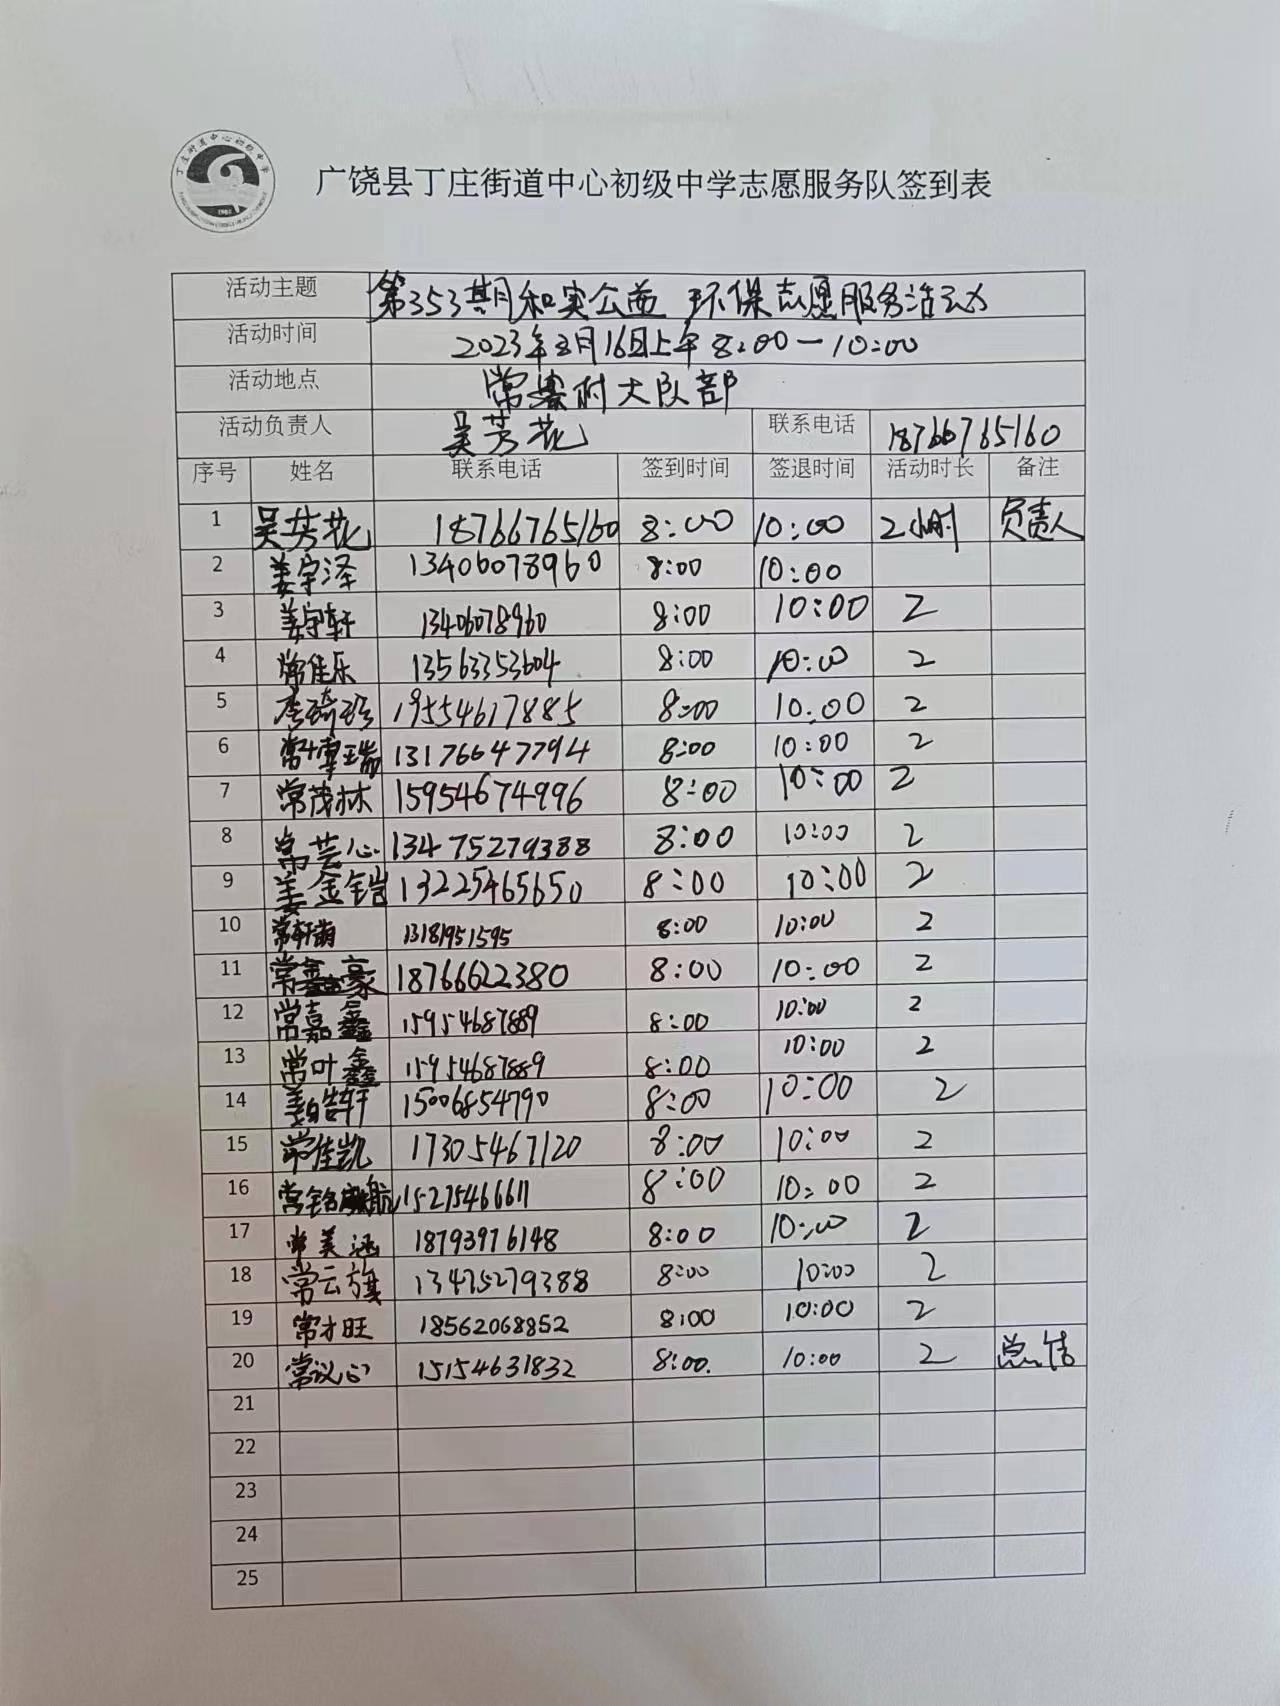 丁庄街道中心初级中学
1982
广饶县丁庄街道中心初级中学志愿服务队签到表
活动主题 第353期和实公益 环保志愿服务活动
活动时间 2023年8月16日上午8:00—10:00
活动地点 常寨村大队部
活动负责人 吴芳花 联系电话 18766765160
序号 姓名 联系电话 签到时间 签退时间 活动时长 备注
1 吴芳花 18766765160 8:00 10:00 2小时 负责人
2 姜宇泽 13406078960 8:00 10:00
3 姜宇轩 13406078960 8:00 10:00 2
4 常佳乐 13563353604 8:00 10:00 2
5 李琦珍 19554617885 8:00 10:00 2
6 常博瑞 13176647794 8:00 10:00 2
7 常茂林 15954674996 8:00 10:00 2
8 常芸心 13475279388 8:00 10:00 2
9 姜金铠 13225465650 8:00 10:00 2
10 常轩萌 13181951595 8:00 10:00 2
11 常鑫豪 18766622380 8:00 10:00 2
12 常嘉鑫 15954687889 8:00 10:00 2
13 常叶鑫 15954687889 8:00 10:00 2
14 姜皓轩 15006854790 8:00 10:00 2
15 常佳凯 17305467120 8:00 10:00 2
16 常铭航 15275466611 8:00 10:00 2
17 常美涵 18793976148 8:00 10:00 2
18 常云旗 13475279388 8:00 10:00 2
19 常才旺 18562068852 8:00 10:00 2
20 常议心 15154631832 8:00. 10:00 2 总结
21
22
23
24
25